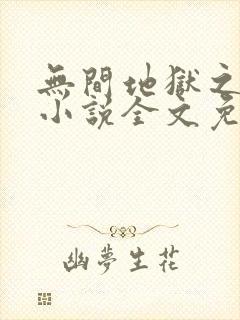 無間地獄之
小說全文免
幽夢生花